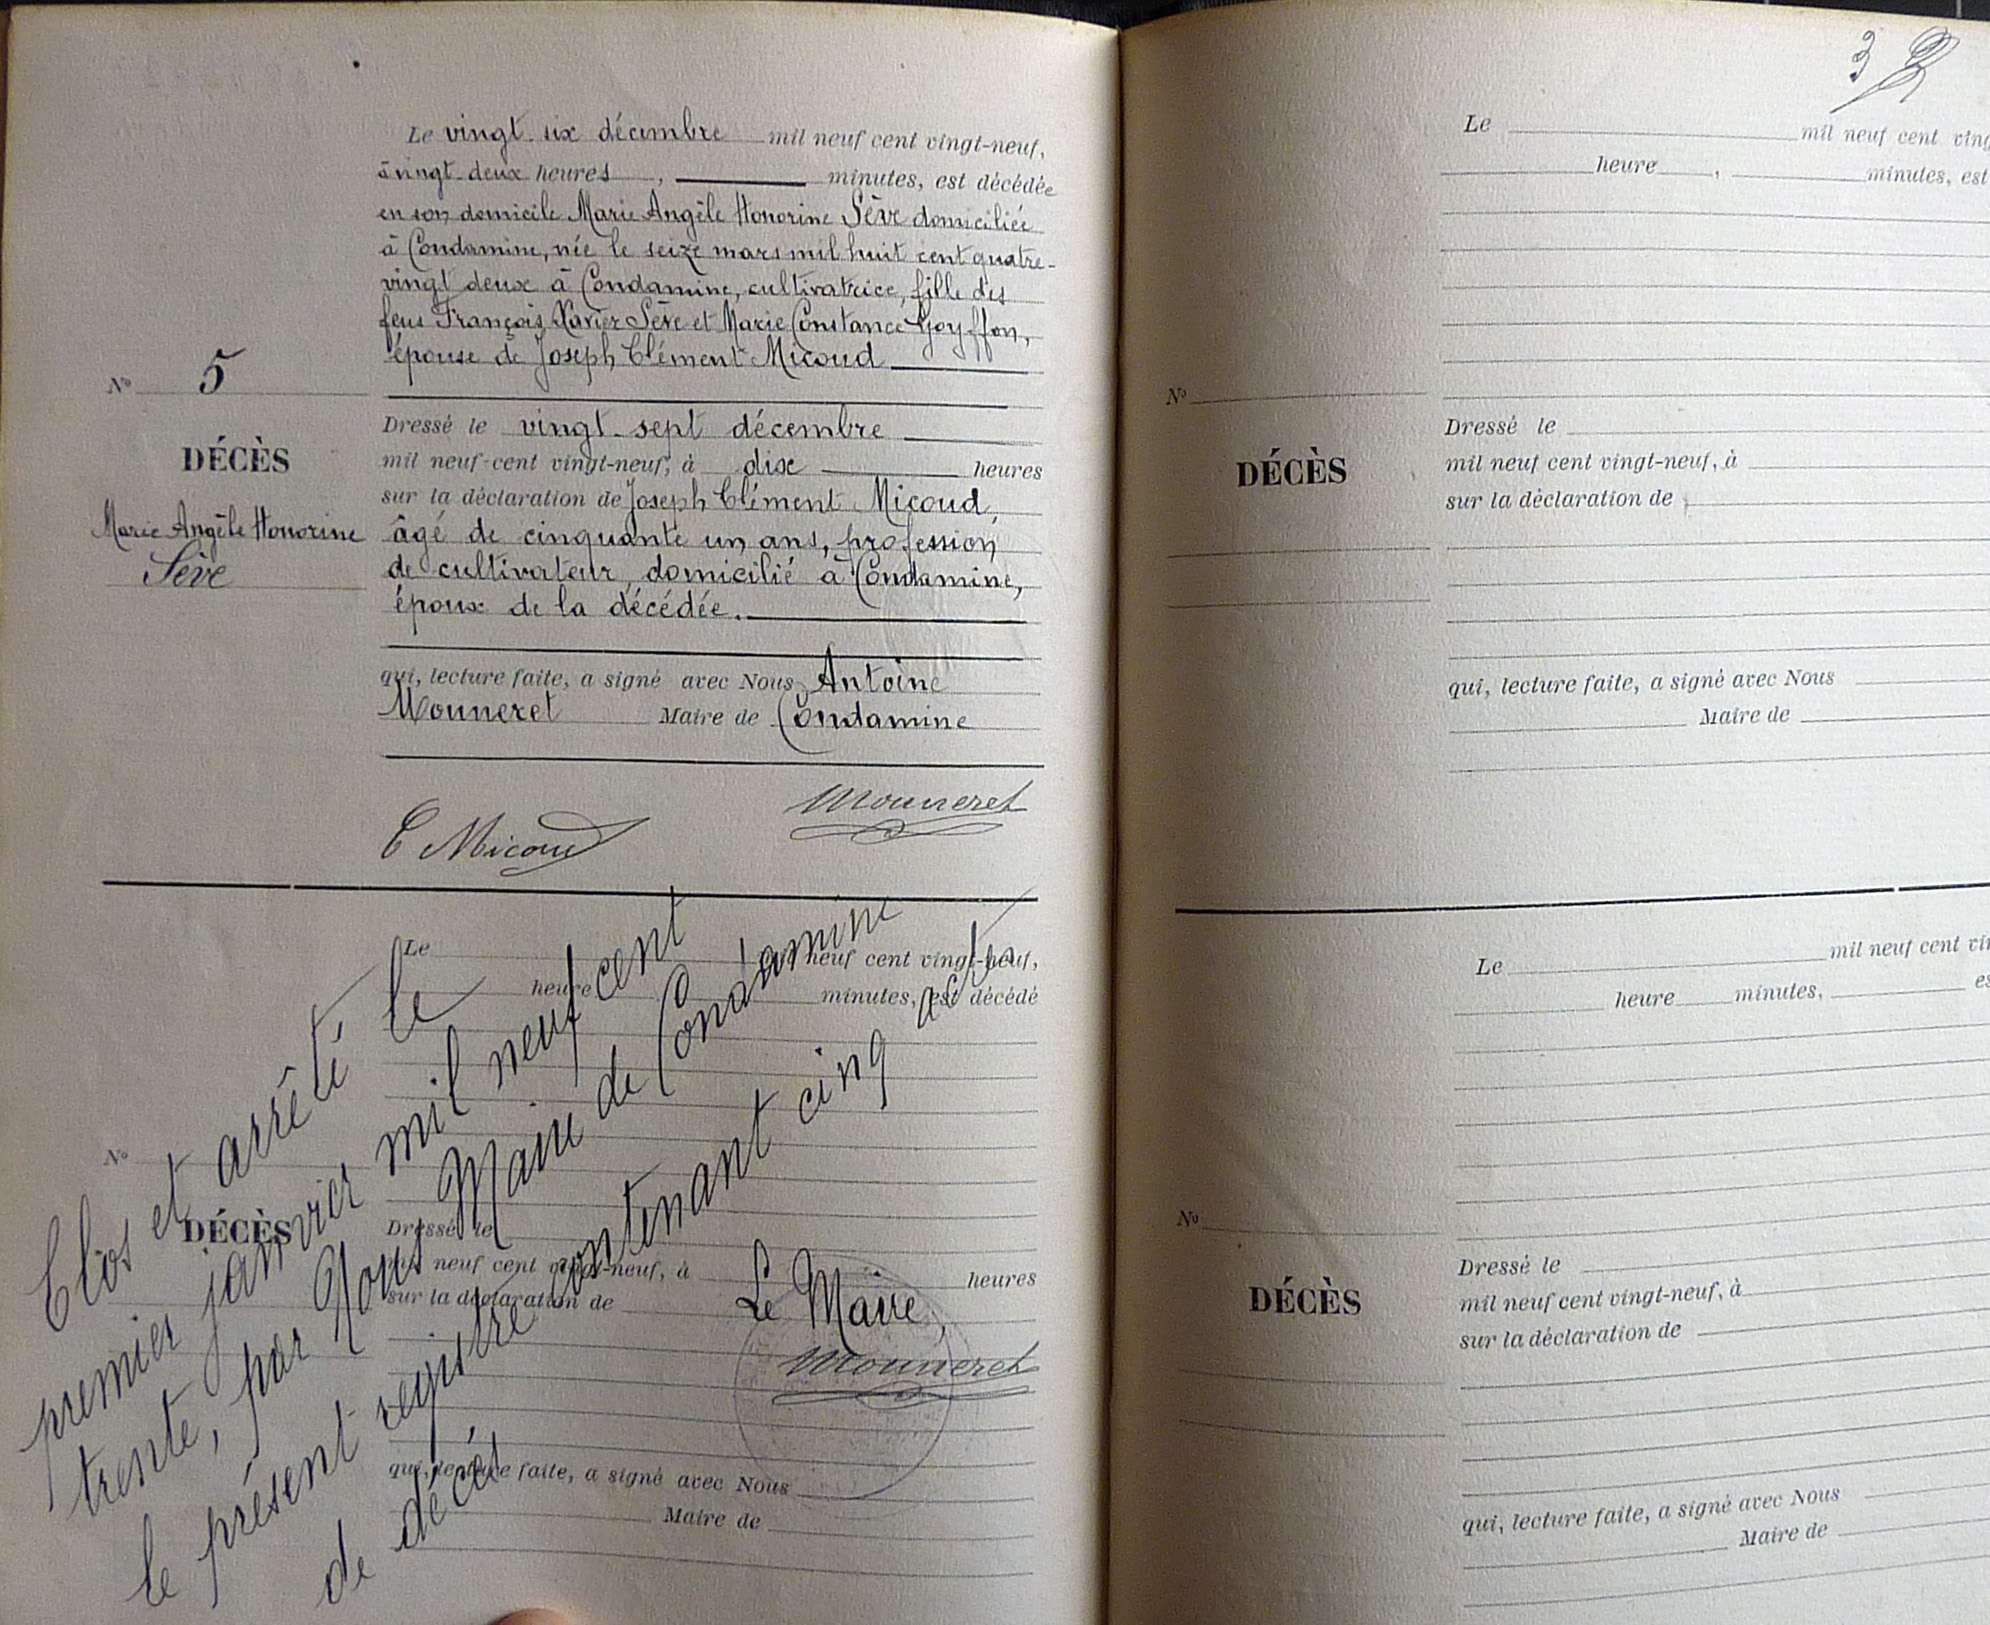 Le vingt-six décembre mil neuf cent vingt-neuf,
à vingt-deux heures , minutes, est décédée
en son domicile Marie Angèle Honorine Sève domiciliée
à Condamine, née le seize mars mil huit cent quatre-
vingt deux à Condamine, cultivatrice, fille des
feus François Xavier Sève et Marie Constance Goyffon,
épouse de Joseph Clément Micoud
No 5
DÉCÈS
Marie Angèle Honorine
Sève
Dressé le vingt-sept décembre
mil neuf cent vingt-neuf, à dix heures
sur la déclaration de Joseph Clément Micoud,
âgé de cinquante un ans, profession
de cultivateur, domicilié à Condamine,
époux de la décédée.
qui, lecture faite, a signé avec Nous Antoine
Mouneret Maire de Condamine
C Micoud
Mouneret
Le mil neuf cent vingt-neuf,
heure minutes, est décédé
No
DÉCÈS
Dressé le
mil neuf cent vingt-neuf, à heures
sur la déclaration de
qui, lecture faite, a signé avec Nous
Maire de
Clos et arrêté le
premier janvier mil neuf cent
trente, par Nous Maire de Condamine
le présent registre contenant cinq actes
de décès
Le Maire,
Mouneret
3
Le mil neuf cent ving
heure , minutes, est
No
DÉCÈS
Dressé le
mil neuf cent vingt-neuf, à
sur la déclaration de
qui, lecture faite, a signé avec Nous
Maire de
Le mil neuf cent vin
heure minutes, es
No
DÉCÈS
Dressé le
mil neuf cent vingt-neuf, à
sur la déclaration de
qui, lecture faite, a signé avec Nous
Maire de